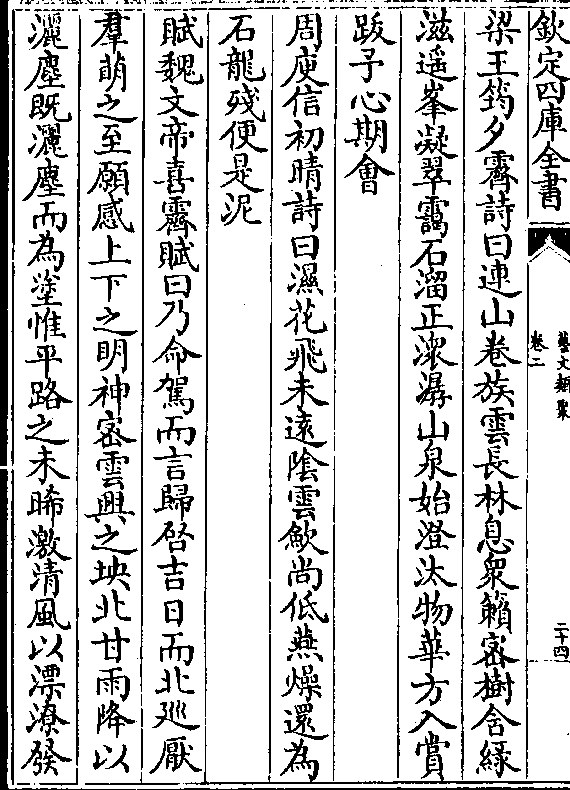 欽定四庫全書
藝文類聚
卷二
二十四
梁王筠夕霽詩曰連山卷族雲長林息衆籟密樹含緑
滋遥峯凝翠靄石溜正潨潺山泉始澄汰物華方入賞
跂予心期會
周庾信初晴詩曰濕花飛未遠陰雲歛尚低燕燥還為
石龍殘便是泥
賦魏文帝喜霽賦曰乃命駕而言歸啓吉日而北廵厭
羣萌之至願感上下之明神密雲興之坱北甘雨降以
灑塵既灑塵而為塗惟平路之未晞激清風以漂潦發